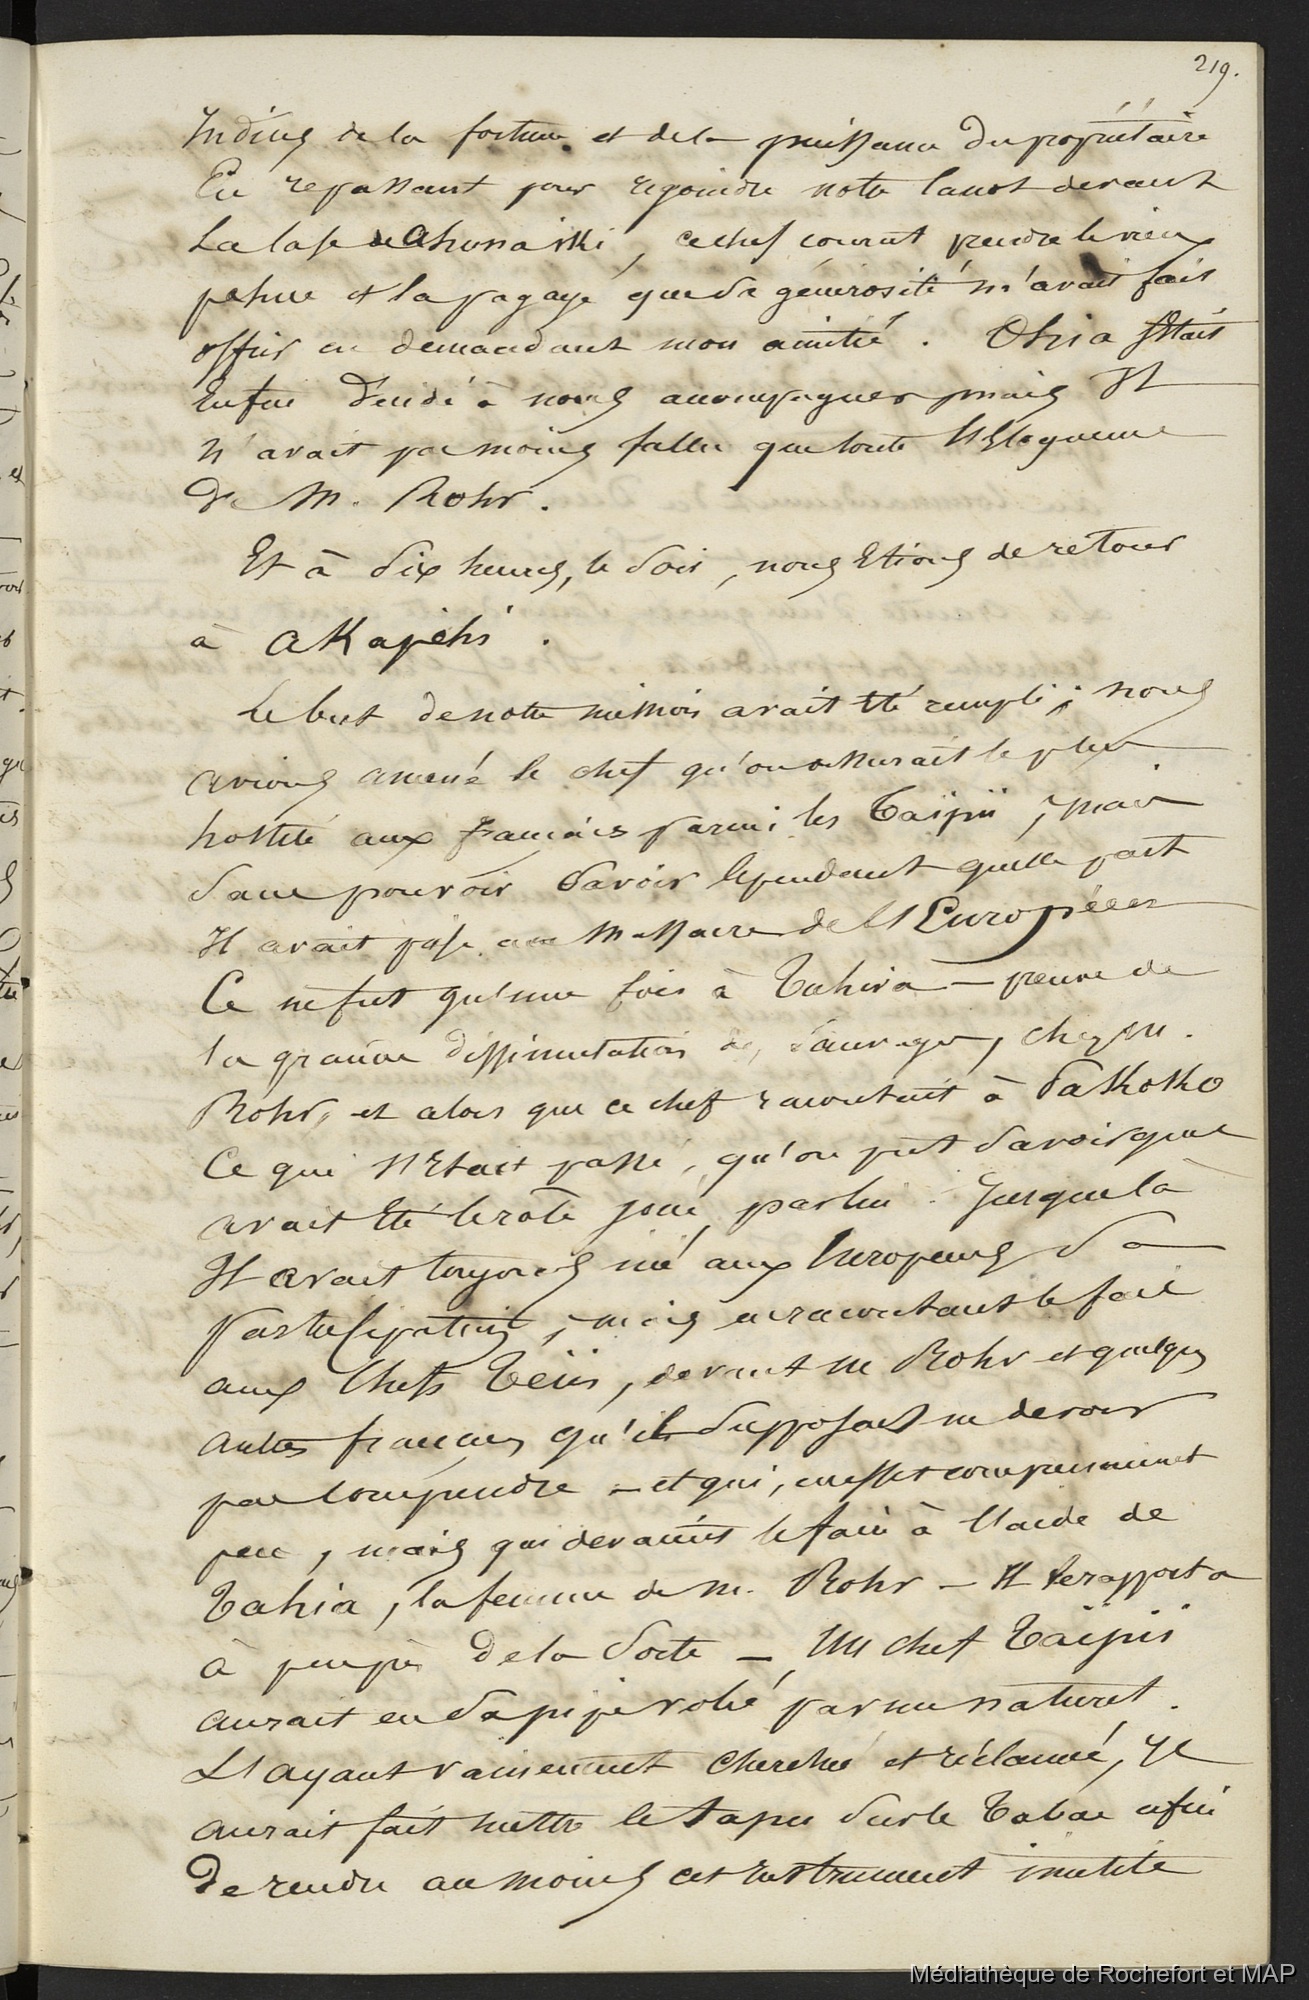 219.
Indices de la fortune et de la puissance du propriétaire
En repassant pour rejoindre notre canot devant
La case de Ahunaiki, ce chef courut prendre le vieux
pehue et la pagaye que sa générosité m'avait fait
offrir en demandant mon amitié. Ohia s'Etait
Enfin décidé à nous accompagner mais Il
n'avait pas moins fallu que toute l'Eloquence
de M. Rohr.
Et à dix heures, le soir, nous Etions de retour
à Akapehi.
Le but de notre mission avait Eté rempli; nous
avions amené le chef qu'on assurait le plus
hostile aux francais parmi les Taïpii; mais
sans pouvoir savoir cependant quelle part
Il avait prise au massacre de l'Européen
Ce ne fut qu'une fois à Tahiva – preuve de
la grande dissimulation des sauvages, chez M.
Rohr, et alors que ce chef racontait à Pakoko
Ce qui s'Etait passé, qu'on put savoir quel
avait Eté le rôle joué par lui. Jusque là
Il avait toujours nié aux Européens sa
participation; mais en racontant le fait
aux Chefs Teiis, devant M Rohr et quelques
autres francais qu'il supposait ne devoir
pas comprendre – et qui, en effet comprenaient
peu, mais qui devaient le faire à l'aide de
Tahia, la femme de M. Rohr – Il le rapporta
à peu près de la sorte – Un chef Taïpii
aurait eu sa pipe volée par un naturel.
L'ayant vainement cherché et réclamé, Il
aurait fait mettre le tapu sur le Tabac afin
De rendre au moins cet instrument inutile
Médiathèque de Rochefort et MAP